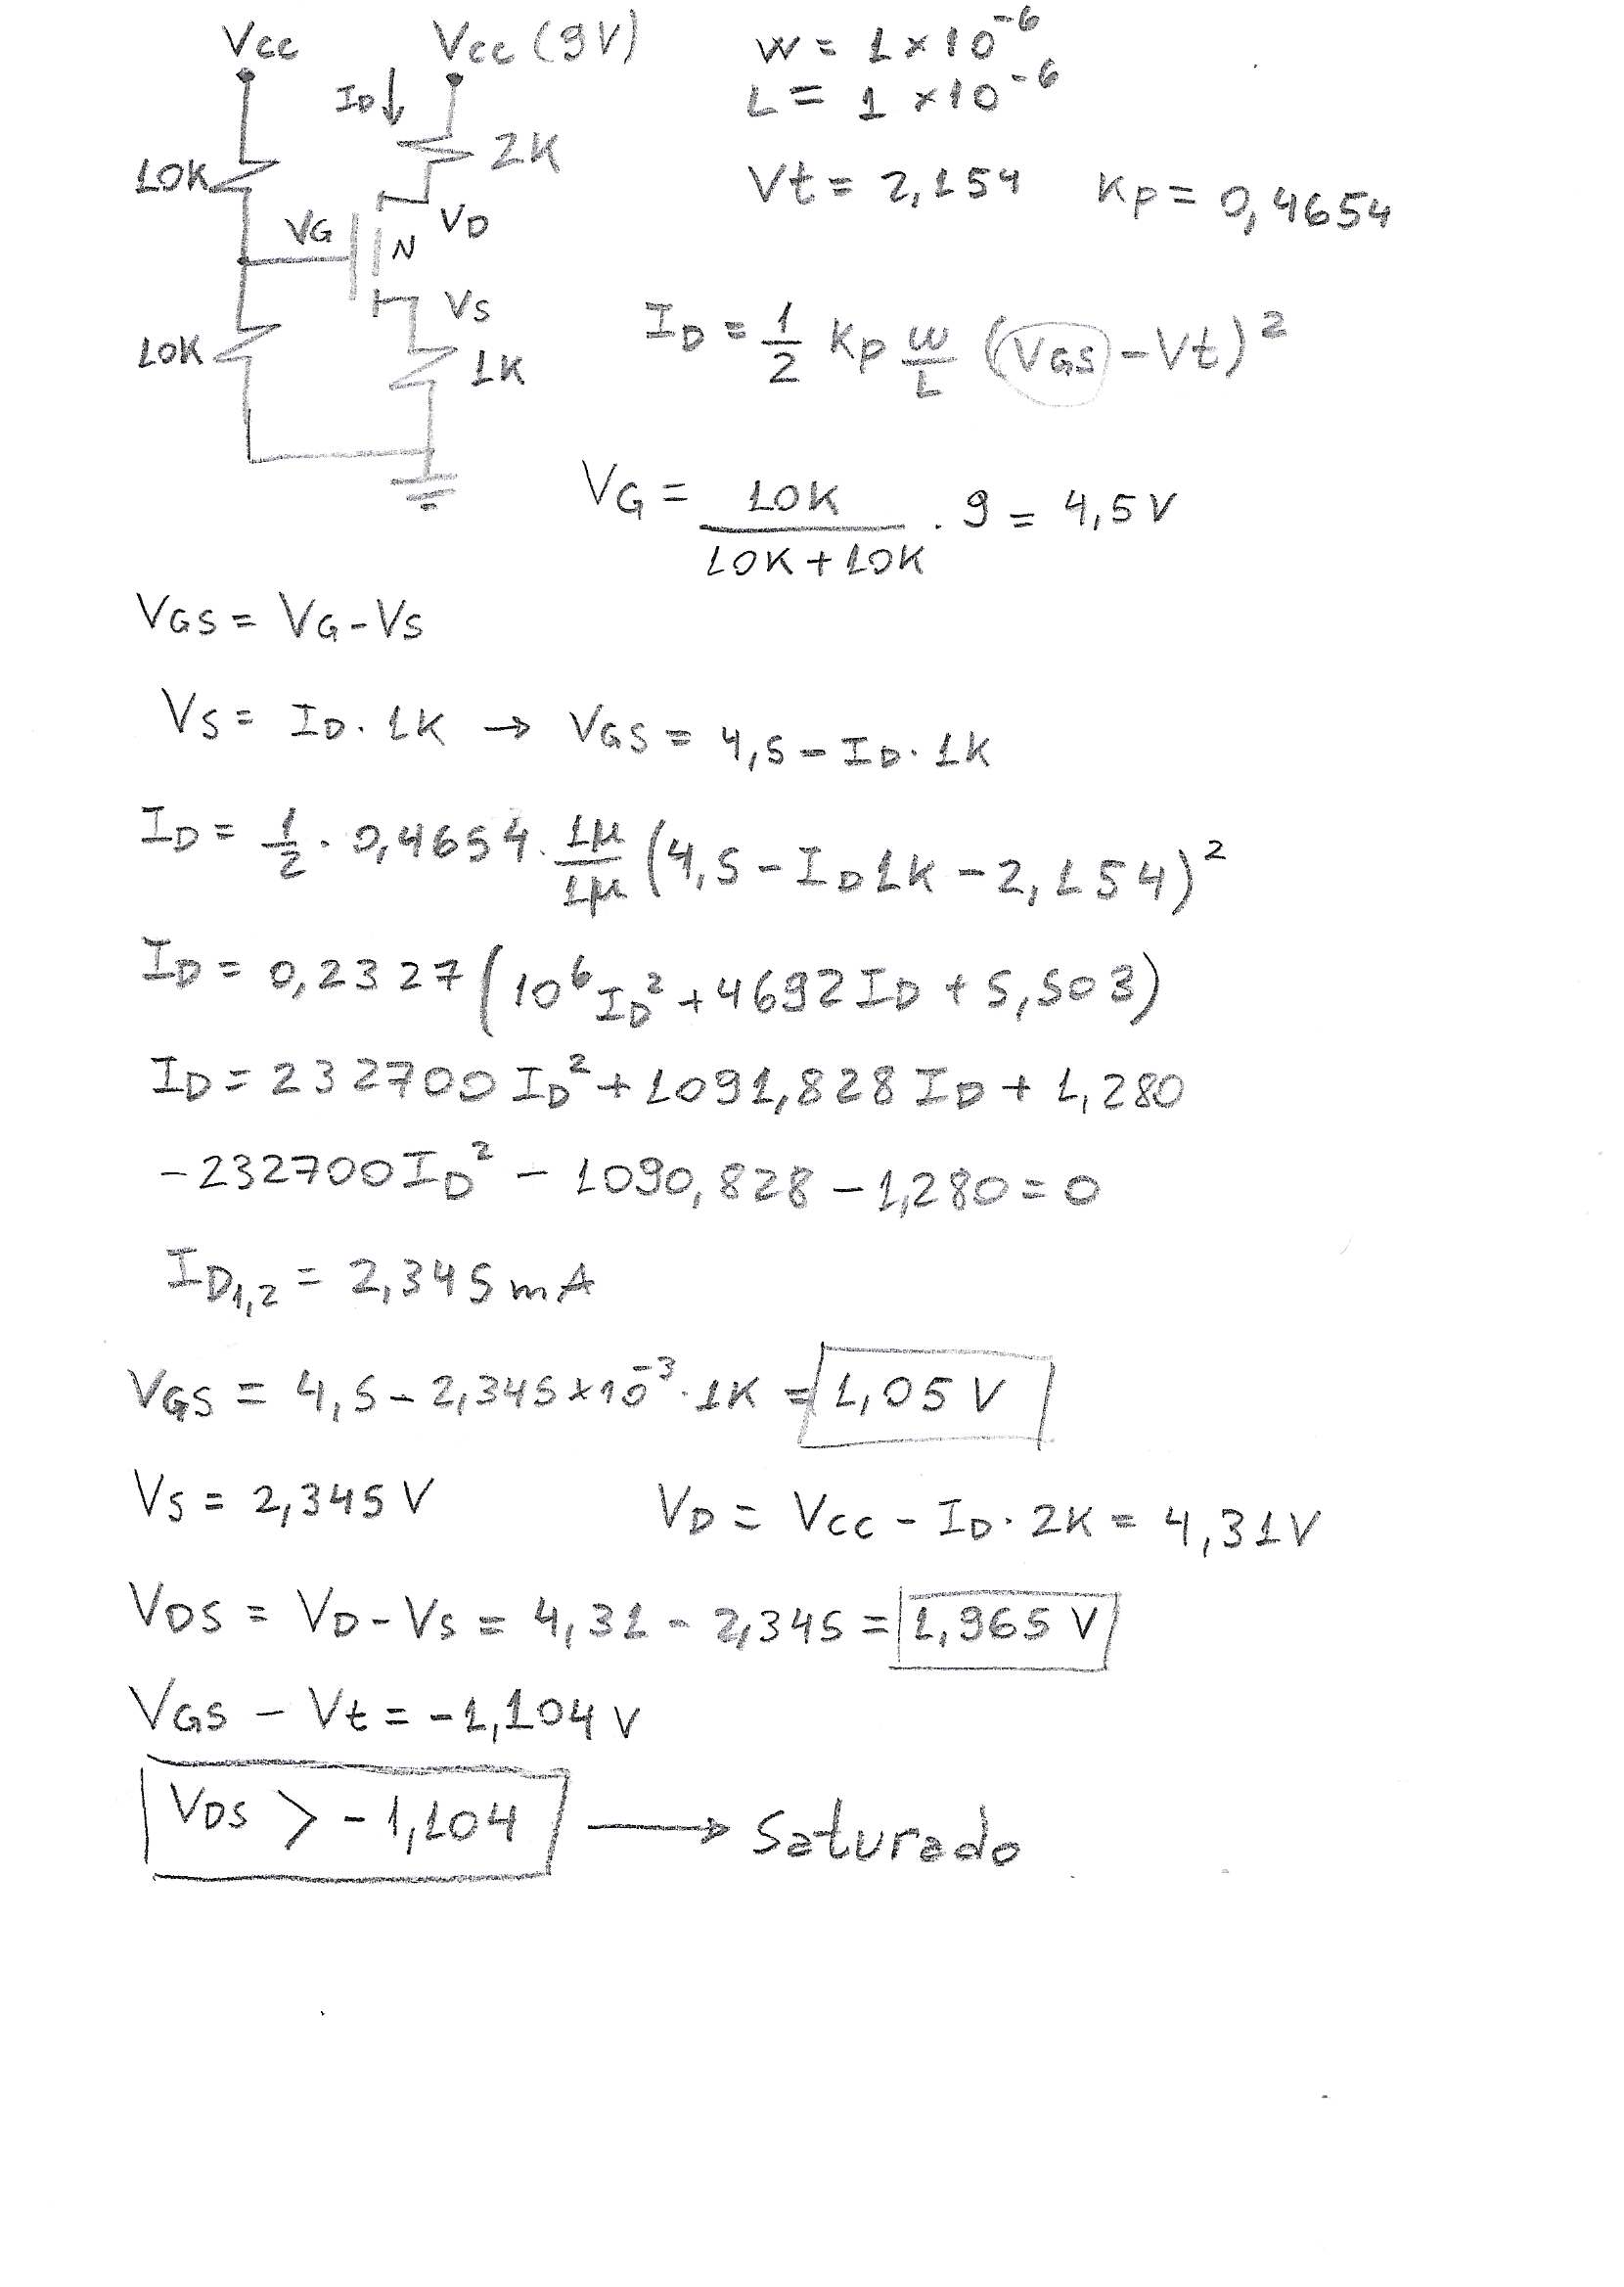 Vcc Vcc (9V) W = 1 × 10^-6
ID↓ L = 1 × 10^-6
10K 2K Vt = 2,154 Kp = 0,4654
VG N VD
VS
10K 1K ID = 1/2 Kp W/L (VGS - Vt)^2
VG = 10K/(10K + 10K) . 9 = 4,5 V
VGS = VG - VS
VS = ID . 1K → VGS = 4,5 - ID . 1K
ID = 1/2 . 0,4654 . 1μ/1μ (4,5 - ID 1K - 2,154)^2
ID = 0,2327 (10^6 ID^2 + 4692 ID + 5,503)
ID = 232700 ID^2 + 1091,828 ID + 1,280
-232700 ID^2 - 1090,828 - 1,280 = 0
ID1,2 = 2,345 mA
VGS = 4,5 - 2,345 × 10^-3 . 1K = 1,05 V
VS = 2,345 V VD = Vcc - ID . 2K = 4,31 V
VDS = VD - VS = 4,31 - 2,345 = 1,965 V
VGS - Vt = -1,104 V
VDS > -1,104 → Saturado